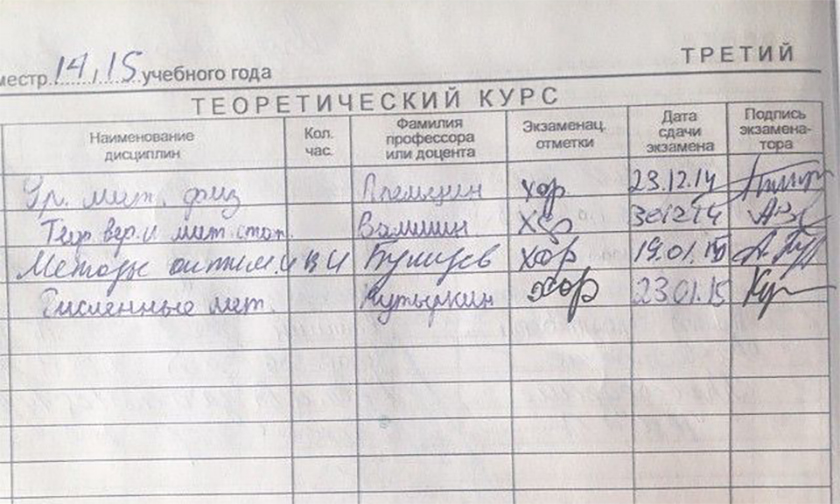 местр 14,15 учебного года
ТРЕТИЙ
ТЕОРЕТИЧЕСКИЙ КУРС
Наименование дисциплин Кол. час. Фамилия профессора или доцента Экзаменац. отметки Дата сдачи экзамена Подпись экзамена-тора
Ур. мат. физ хор 23.12.14
Теор. вер. и мат. стат. хор 301214
Методы оптим. и ВИ хор 19.01.15
Численные мет. Кутыркин хор 23.01.15 Кут